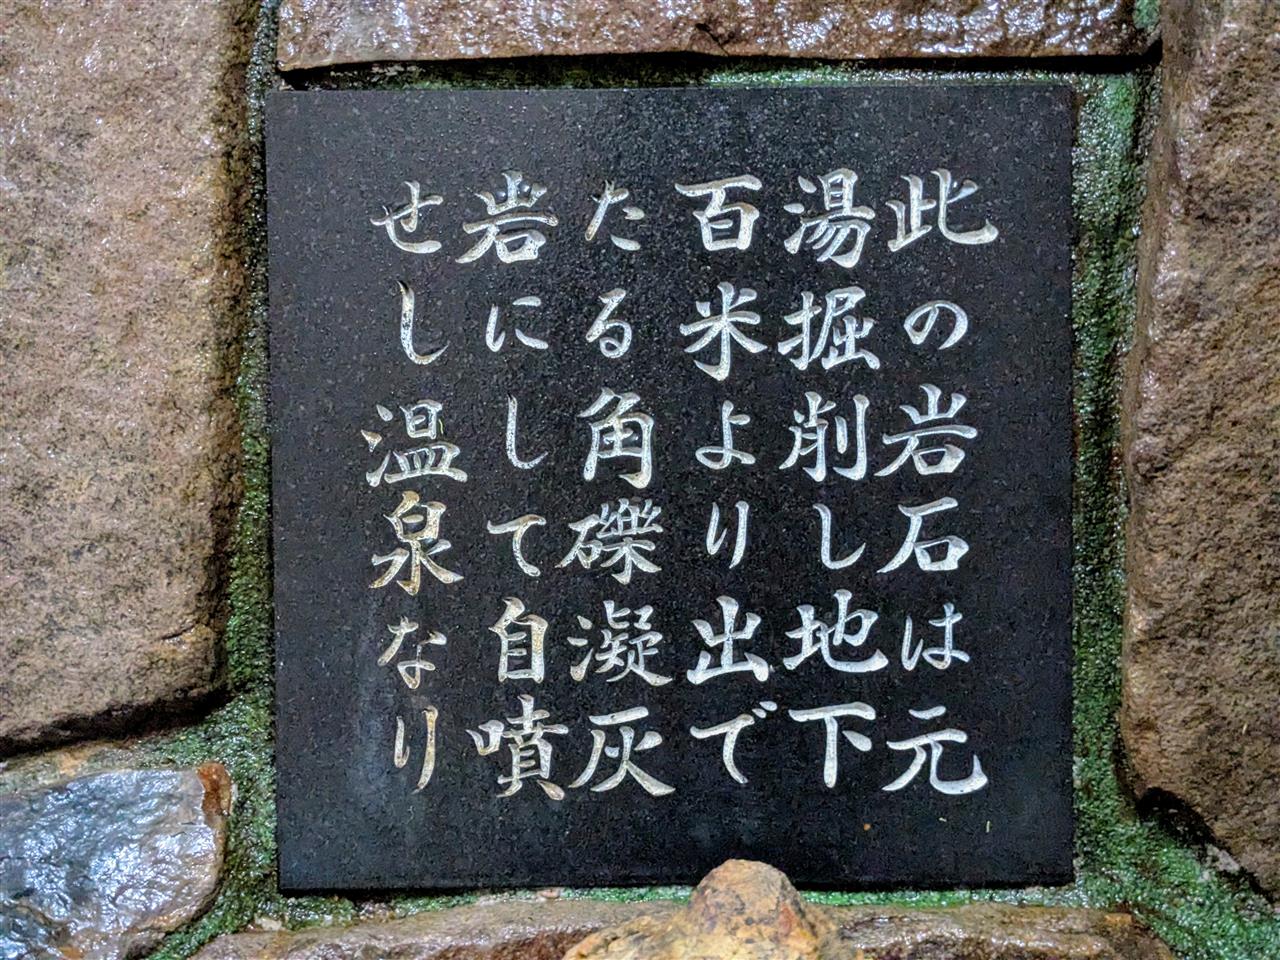 此の岩石は元
湯掘削し地下
百米より出で
たる角礫凝灰
岩にして自噴
せし温泉なり